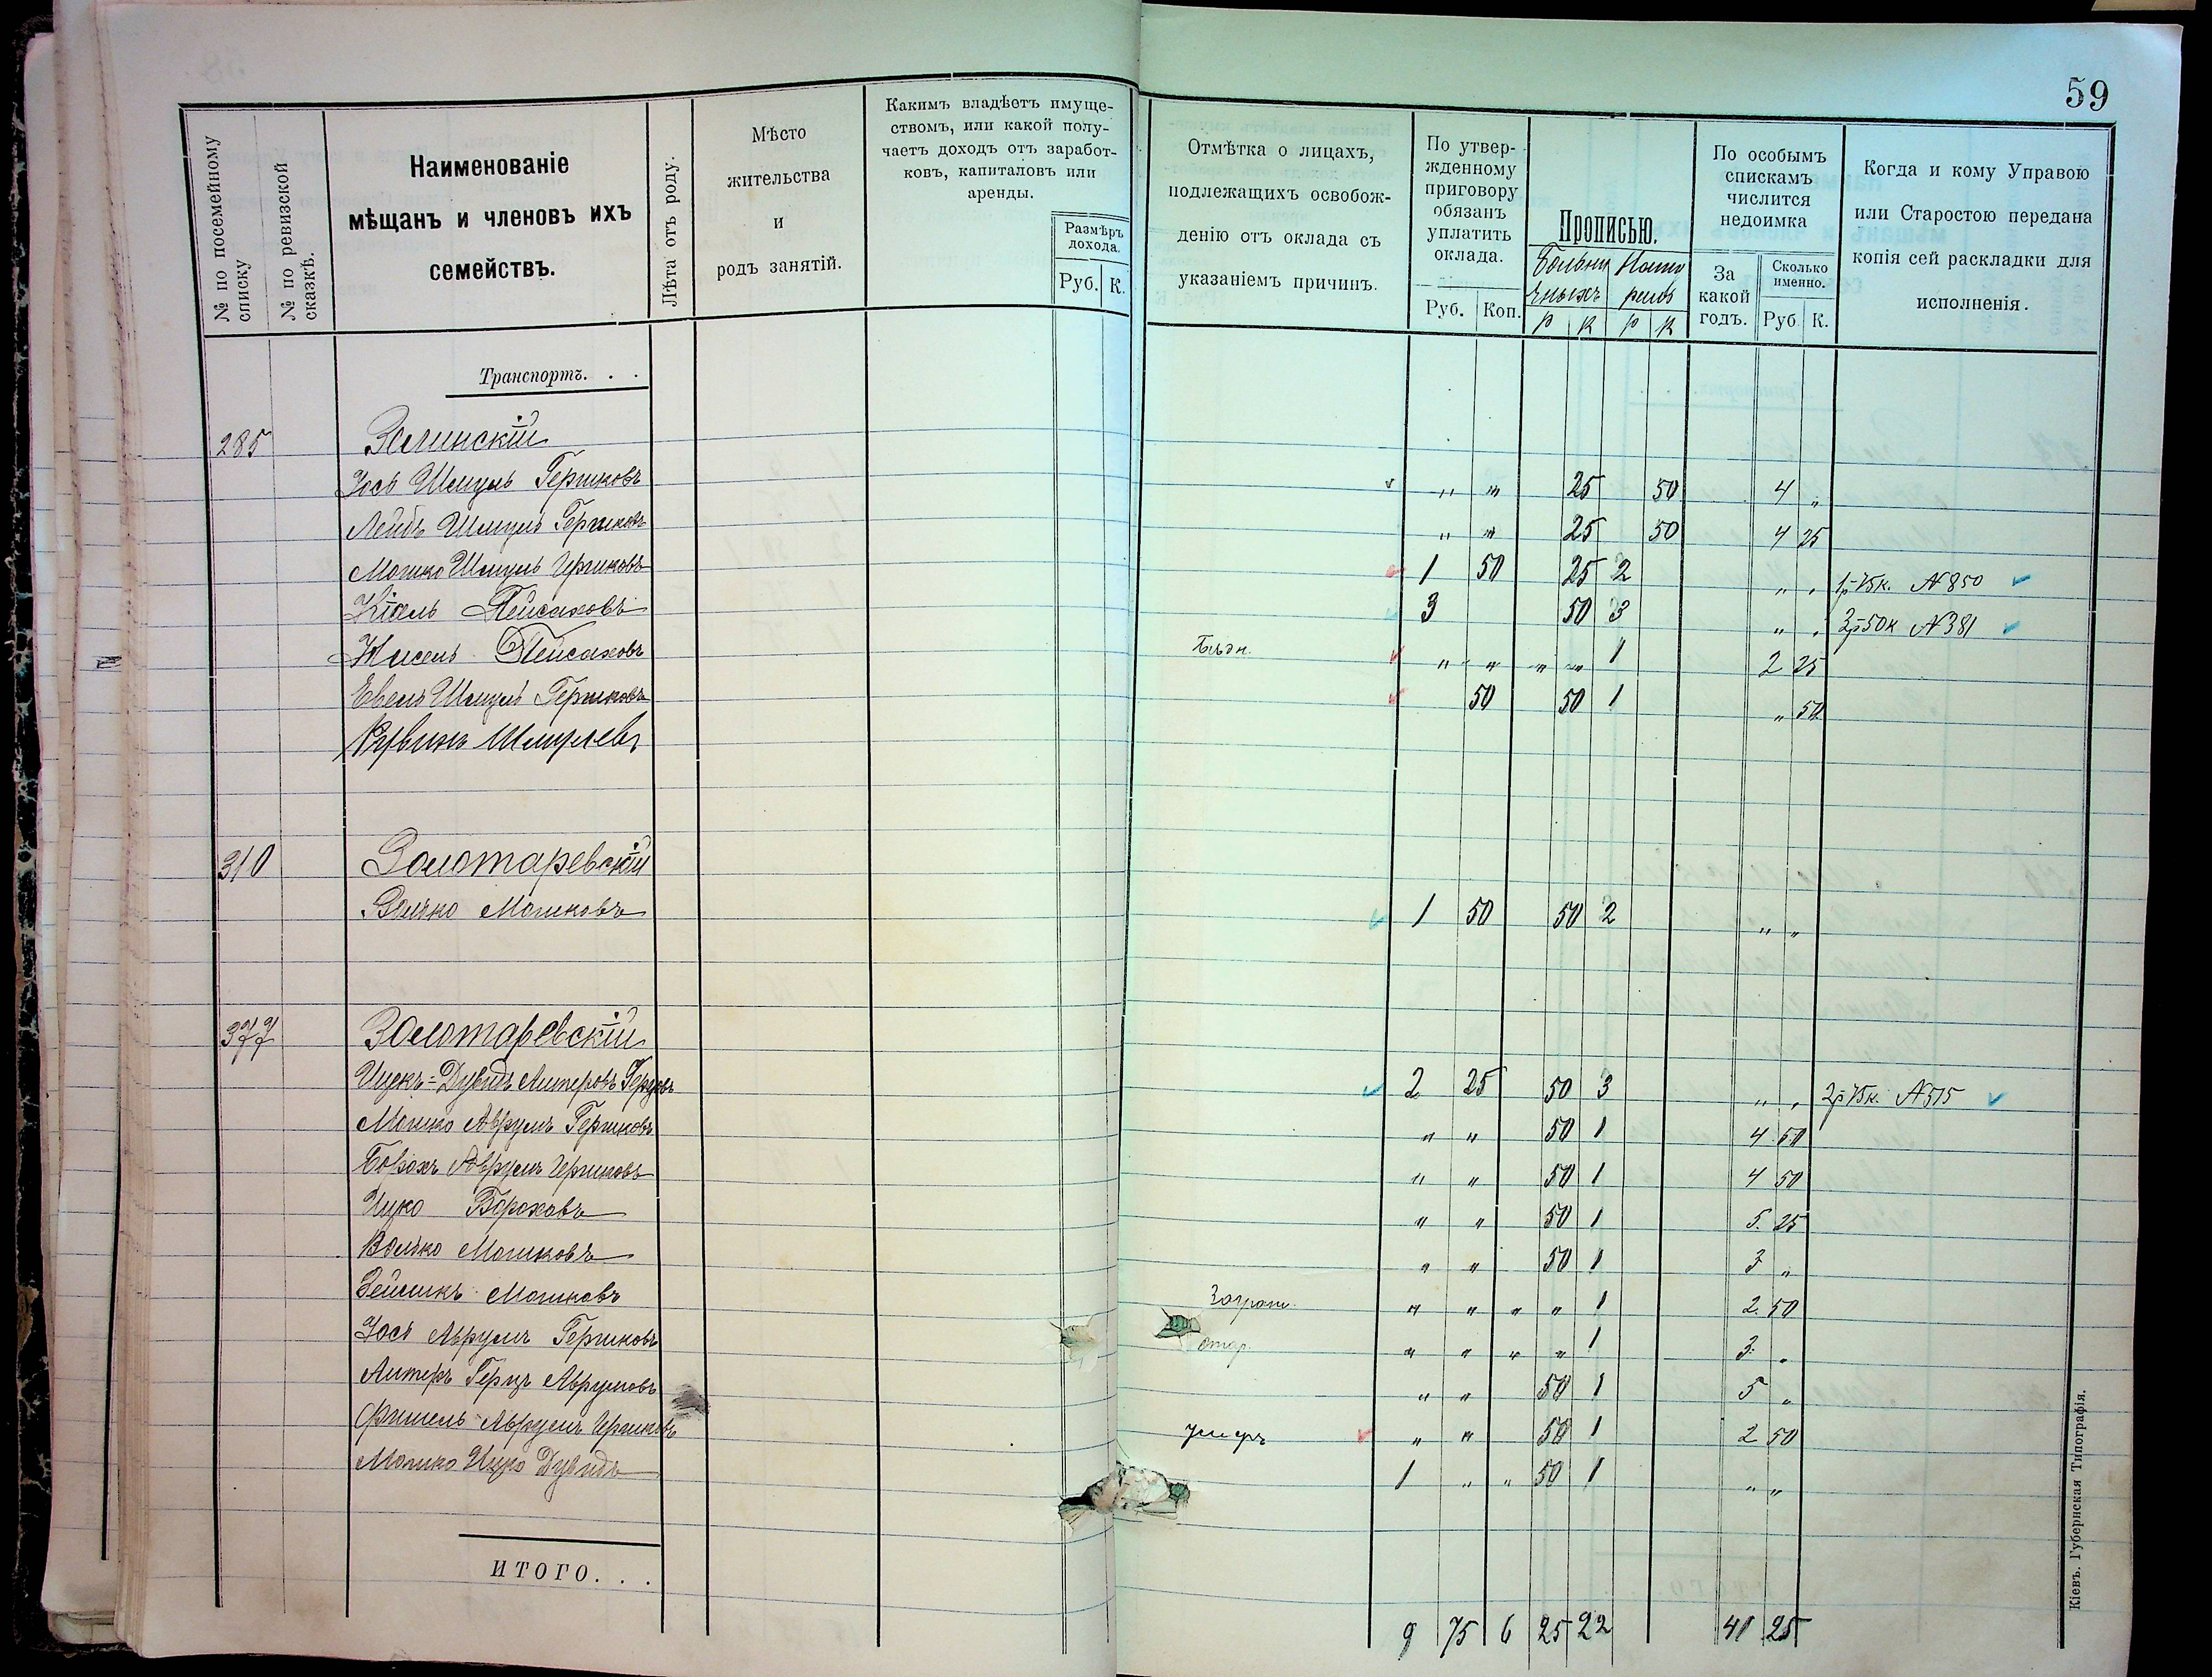 59
№ по посемейному списку
№ по ревизской сказкѣ.
Наименованіе мѣщанъ и членовъ ихъ семействъ.
Лѣта отъ роду.
Мѣсто жительства и родъ занятій.
Какимъ владѣетъ имуществомъ, или какой получаетъ доходъ отъ заработковъ, капиталовъ или аренды.
Размѣръ дохода.
Руб. К.
Отмѣтка о лицахъ, подлежащихъ освобожденію отъ оклада съ указаніемъ причинъ.
По утвержденному приговору обязанъ уплатить оклада.
Руб. Коп.
Прописью.
р к р к
По особымъ спискамъ числится недоимка
За какой годъ.
Сколько именно.
Руб. К.
Когда и кому Управою или Старостою передана копія сей раскладки для исполненія.
Транспортъ. . .
285 Зелинскій
Іось Шмуль Гершковъ " " 25 50 4 "
Лейбъ Шмуль Гершковъ " " 25 50 4 25
Мошко Шмуль Гершковъ 1 50 25 2 " " 1р 75к. № 850
Кіель Пейсаховъ 3 50 3 " " 3р 50к № 381
Пейсаховъ " " " " 1 2 25
Евель Шмуль Гершковъ 50 50 1 " 50
Рувинъ Шмулевъ
310 Золотаревскій
Волько Мошковъ 1 50 50 2 " "
377 Золотаревскій
Ицекъ=Дувидъ Литеровъ 2 25 50 3 " " 2р 75к. № 515
Мошко Аврумъ Гершковъ " " 50 1 4 50
Борохъ Аврумъ Гершковъ " " 50 1 4 50
Ицко Бороховъ " " 50 1 5 25
Волько Мошковъ " " 50 1 3 "
Зейликъ Мошковъ " " " " 1 2 50
Іось Аврумъ Гершковъ стар. " " " " 1 3 "
Литеръ Герцъ Аврумовъ " " 50 1 5 "
Фишель Аврумъ Гершковъ умеръ " " 50 1 2 50
Мошко Ицко Дувидъ 1 " " 50 1 " "
ИТОГО. . .
9 75 6 25 22 41 25
Кіевъ. Губернская Типографія.